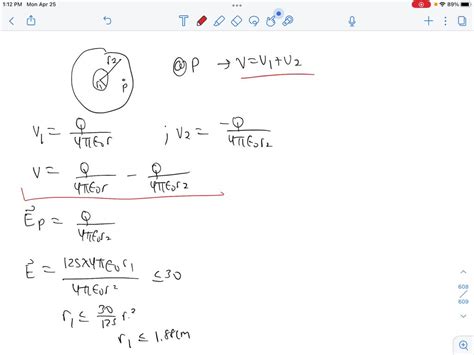 1:12 PM Mon Apr 25
r2
r1
P
@P → V=V1+V2
V1 = Q/4πε0r ; V2 = -Q/4πε0r2
V = Q/4πε0r - Q/4πε0r2
E⃗p = Q/4πε0r2
E⃗ = 125×4πε0r1/4πε0r² ≤30
r1 ≤ 30/125 r²
r1 ≤ 1.88cm
608
/
609